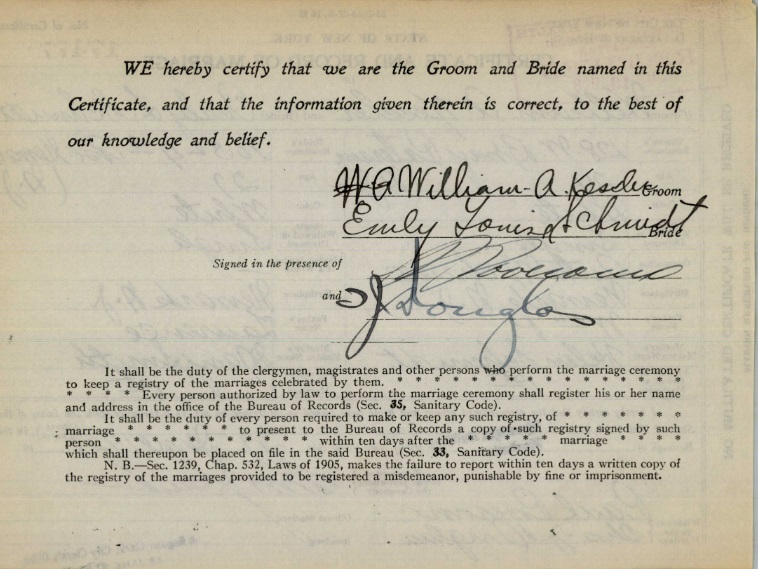 WE hereby certify that we are the Groom and Bride named in this
Certificate, and that the information given therein is correct, to the best of
our knowledge and belief.
W A William A. Kessler Groom
Emily Louise Schmidt Bride
Signed in the presence of
and J Douglas
It shall be the duty of the clergymen, magistrates and other persons who perform the marriage ceremony
to keep a registry of the marriages celebrated by them. * * * * * * * * * * * * * * * *
* * * * Every person authorized by law to perform the marriage ceremony shall register his or her name
and address in the office of the Bureau of Records (Sec. 35, Sanitary Code).
It shall be the duty of every person required to make or keep any such registry, of * * * * * *
marriage * * * * * * to present to the Bureau of Records a copy of such registry signed by such
person * * * * * * * * * * within ten days after the * * * * * marriage * * * *
which shall thereupon be placed on file in the said Bureau (Sec. 33, Sanitary Code).
N. B.—Sec. 1239, Chap. 532, Laws of 1905, makes the failure to report within ten days a written copy of
the registry of the marriages provided to be registered a misdemeanor, punishable by fine or imprisonment.